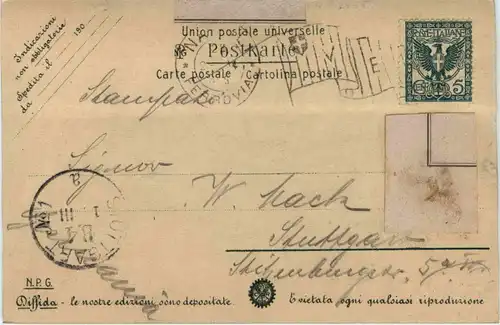 Indicazioni
non obbligatorie
Spedita il 190
da
Union postale universelle
Postkarte
Carte postale Cartolina postale
FERROVIA
POSTE ITALIANE
5
Stampato
Signor
W. Mack
Stuttgart
STUTTGART No 1
1 III
a
N.P.G.
Diffida - le nostre edizioni sono depositate.
E vietata ogni qualsiasi riproduzione